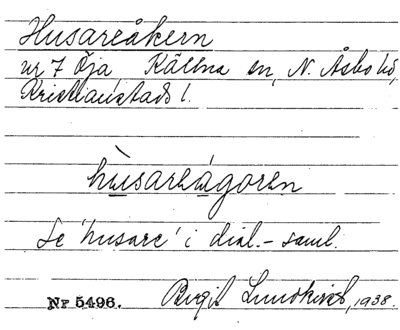 Husareåkern
ur 7 Öja Källna sn, N. Åsbo hd,
Kristianstads l.
hùsareágoren
Se 'husare' i dial.-saml.
Nr 5496. Birgit Lundkvist, 1938.